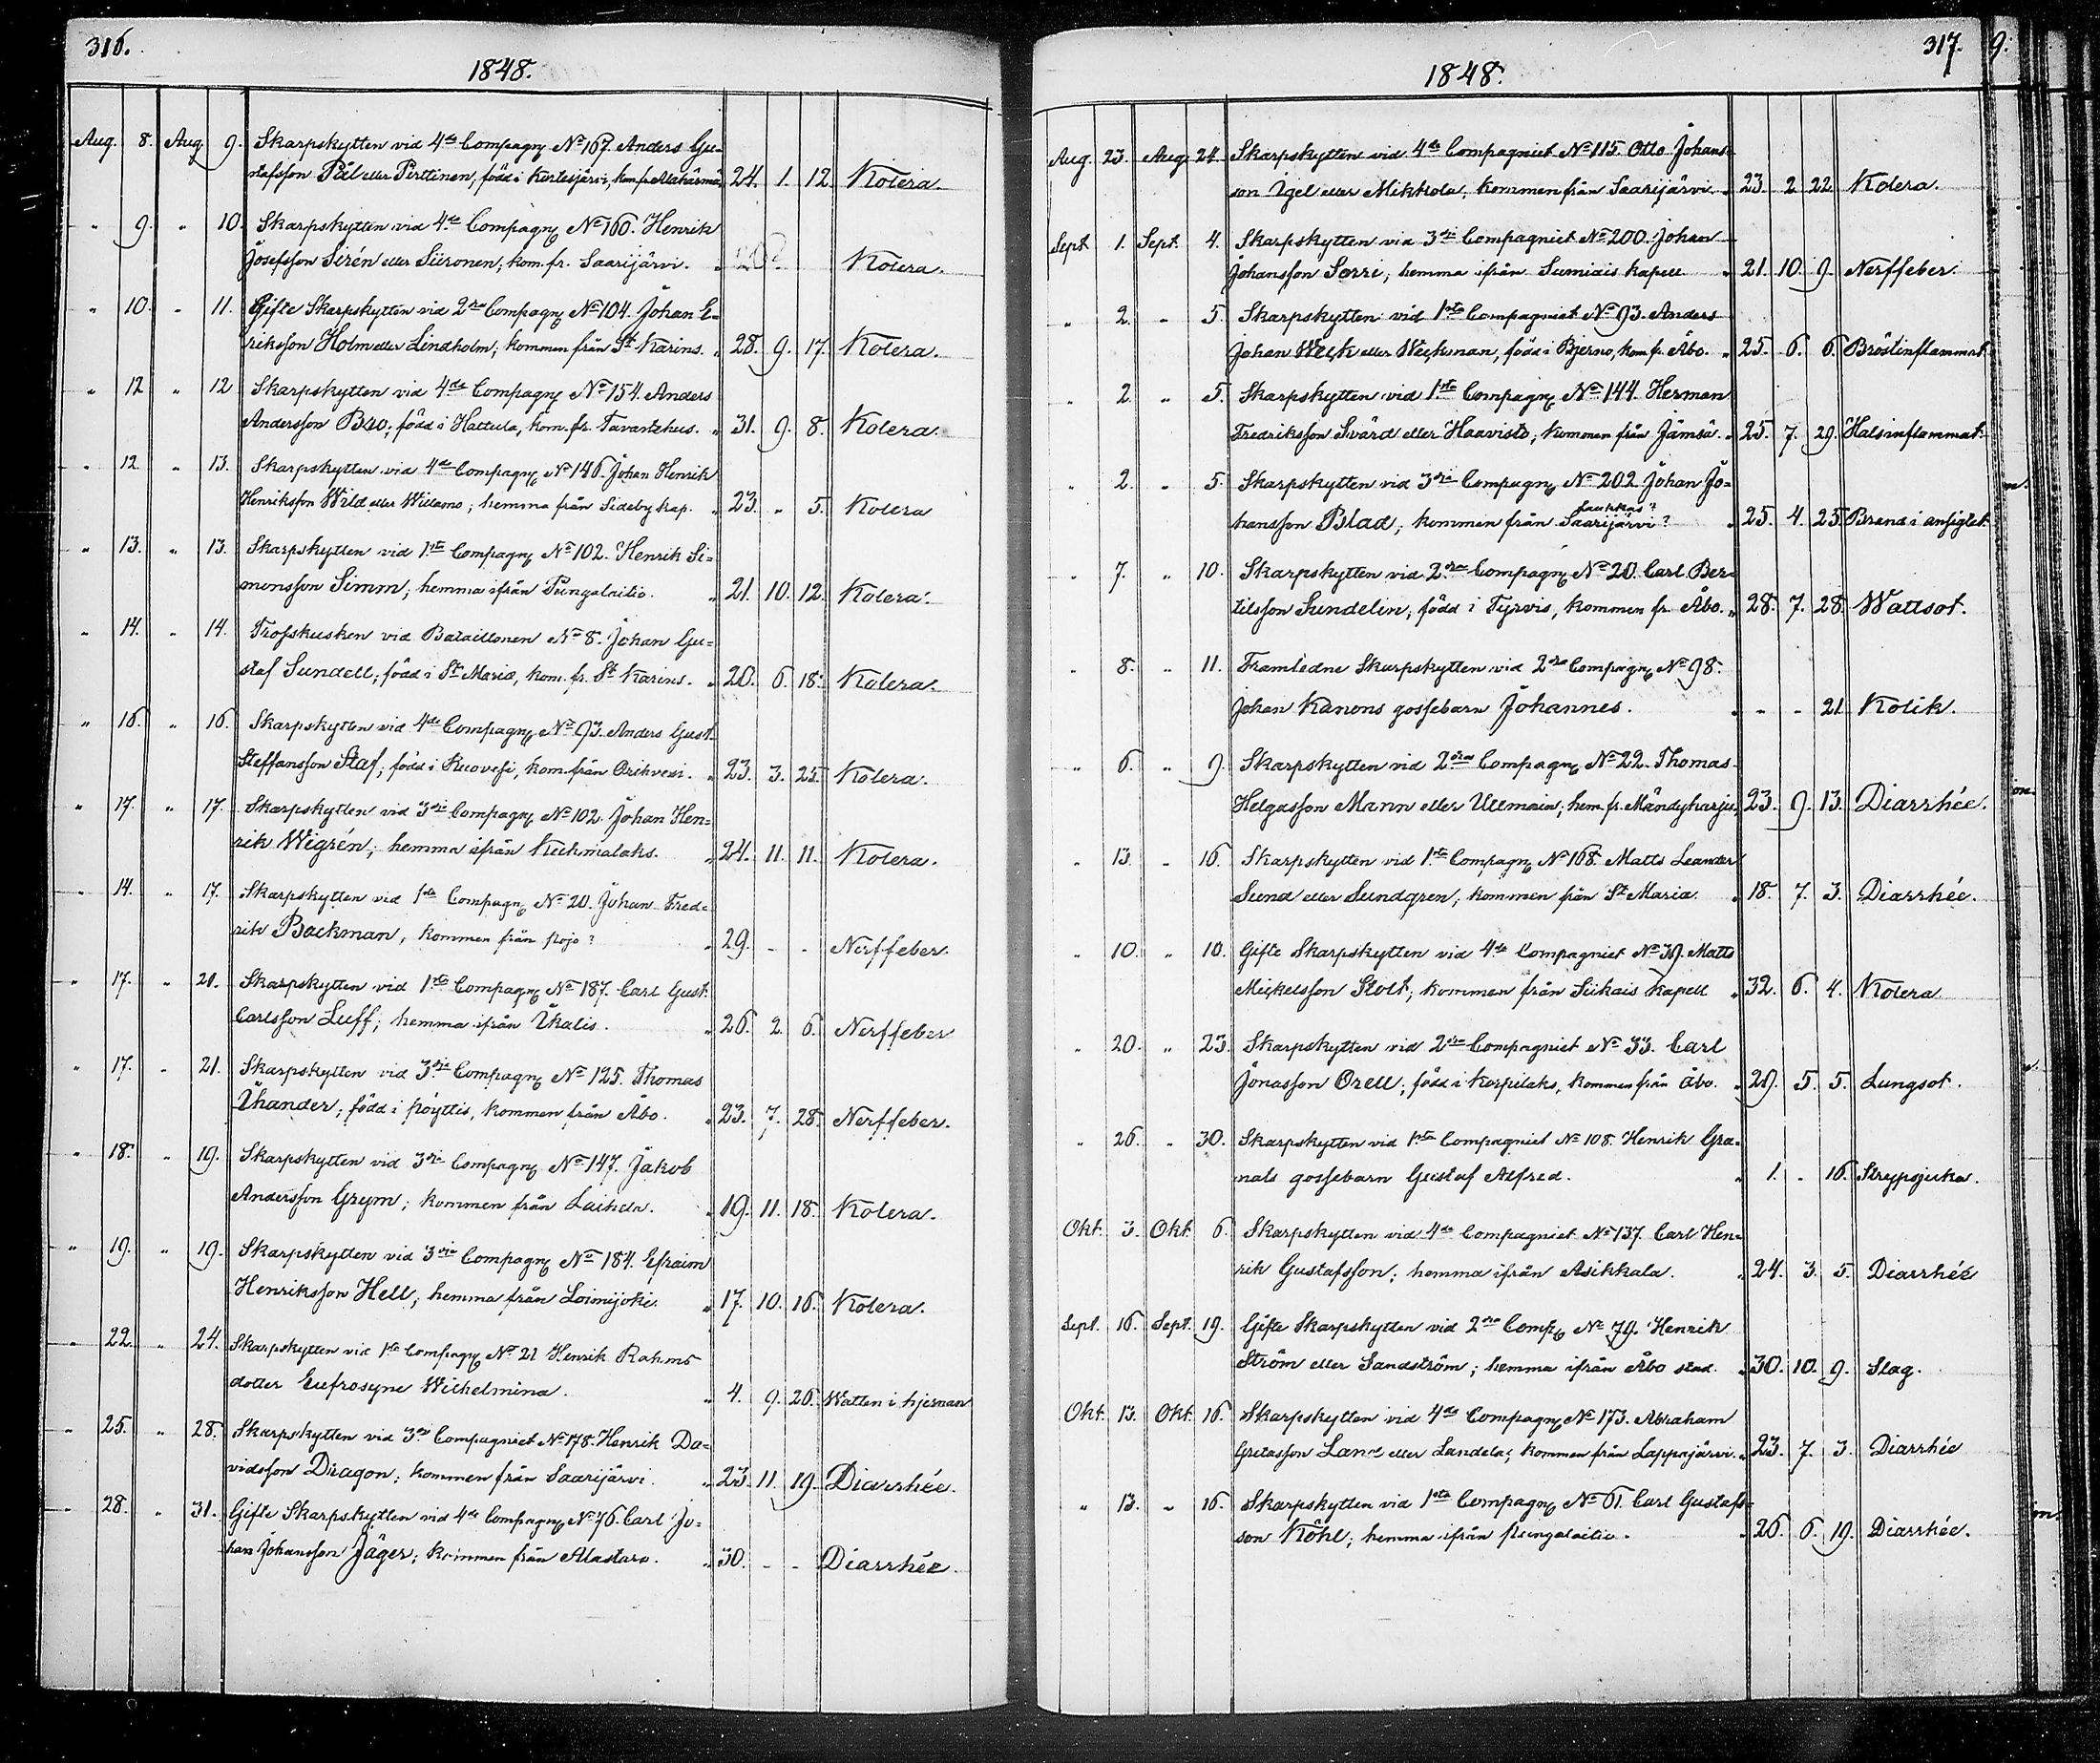 316.
1848.
Aug. 8. Aug. 9. Skarpskytten vid 4de Compagn No 167. Anders Gu-
stafsson Pål eller Perttinen, född i Kortesjärvi, kom. fr. Alahärmä 24. 1. 12. Kolera.
" 9. " 10. Skarpskytten vid 4de Compagn No 160. Henrik
Josefsson Sirén eller Siironen; kom. fr. Saarijärvi. " 20? Kolera.
" 10. " 11. Gifte Skarpskytten vid 2dra Compagn No 104. Johan E-
riksson Holm eller Lindholm; kommen från St Karins. " 28. 9. 17. Kolera.
" 12 " 12 Skarpskytten vid 4de Compagn No 154. Anders
Andersson Bro; född i Hattula, kom. fr. Tavastehus. " 31. 9. 8. Kolera.
" 12. " 13. Skarpskytten vid 4de Compagn No 146. Johan Henrik
Henriksson Wild eller Willamo; hemma från Sideby kap. " 23. " 5. Kolera
" 13. " 13. Skarpskytten vid 1sta Compagn No 102. Henrik Si-
monsson Simm; hemma ifrån Pungalaitio. " 21. 10. 12. Kolera.
" 14. " 14. Trosskusken vid Bataillonen No 8. Johan Gu-
staf Sundell; född i St Maria, kom. fr. St Karins. " 20. 6. 18. Kolera.
" 16. " 16. Skarpskytten vid 4de Compagn No 93. Anders Gust.
Steffansson Staf; född i Ruovesi, kom. från Orihvesi. " 23. 3. 25. Kolera.
" 17. " 17. Skarpskytten vid 3dje Compagn No 102. Johan Hen-
rik Wigrén; hemma ifrån Kuhmalaks. " 24. 11. 11. Kolera.
" 14. " 17. Skarpskytten vid 1sta Compagn No 20. Johan Fred-
rik Backman, kommen från Pojo? " 29. - - Nerffeber.
" 17. " 20. Skarpskytten vid 1sta Compagn No 187. Carl Gust.
Carlsson Luff; hemma ifrån Ikalis. " 26. 2. 6. Nerffeber
" 17. " 21. Skarpskytten vid 3dje Compagn No 125. Thomas
Thander; född i Pöyttis, kommen från Åbo. " 23. 7. 28. Nerffeber.
" 18. " 19. Skarpskytten vid 3dje Compagn No 147. Jakob
Andersson Grym; kommen från Laihela. " 19. 11. 18. Kolera.
" 19. " 19. Skarpskytten vid 3dje Compagn No 184. Efraim
Henriksson Hell; hemma från Loimijoki. " 17. 10. 16. Kolera.
" 22. " 24. Skarpskytten vid 1sta Compagn No 21 Henrik Rahms
dotter Eufrosyne Wilhelmina. " 4. 9. 26. Watten i hjernan
" 25. " 28. Skarpskytten vid 3dje Compagniet No 178. Henrik Da-
vidsson Dragon; kommen från Saarijärvi. " 23. 11. 19. Diarrhée.
" 28. " 31. Gifte Skarpskytten vid 4de Compagn No 76. Carl Jo-
han Johansson Jäger; kommen från Alastaro. " 30. - - Diarrhée.
317.
1848.
Aug. 23. Aug. 24. Skarpskytten vid 4de Compagniet No 115. Otto Johans-
son Igel eller Mikkola; kommen från Saarijärvi. " 23. 2 22 Kolera.
Sept. 1. Sept. 4. Skarpskytten vid 3dje Compagniet No 200. Johan
Johansson Sorri; hemma ifrån Sumiais kapell " 21. 10. 9. Nerffeber.
" 2. " 5. Skarpskytten vid 1sta Compagniet No 93. Anders
Johan Weck eller Weckman, född i Bjerno, kom. fr. Åbo. " 25. 6. 6. Bröstinflammat.
" 2. " 5. Skarpskytten vid 1sta Compagn No 144. Herman
Fredriksson Svärd eller Haavisto; kommen från Jämsä. " 25. 7. 29. Halsinflammat.
" 2. " 5. Skarpskytten vid 3dje Compagn No 202. Johan Jo-
Laukkas?
hansson Blad; kommen från Saarijärvi? " 25. 4. 25. Brand i ansigtet.
" 7. " 10. Skarpskytten vid 2dra Compagn No 20. Carl Ber-
tilsson Sundelin; född i Tyrvis, kommen fr. Åbo. " 28. 7. 28. Wattsot.
" 8. " 11. Framledne Skarpskytten vid 2dra Compagn No 98.
Johan Kanons gossebarn Johannes. " - - 21 Kolik.
" 6. " 9. Skarpskytten vid 2dra Compagn No 22. Thomas
Helgasson Mann eller Ullmain; hem. fr. Mändyharju. 23. 9. 13. Diarrhée.
" 13. " 16. Skarpskytten vid 1sta Compagn No 168. Matts Leander
Sund eller Sundgren; kommen från St Maria. " 18. 7. 3. Diarrhée.
" 10. " 10. Gifte Skarpskytten vid 4de Compagniet No 39. Matts
Mickelsson Stolt; kommen från Siikais Kapell " 32. 6. 4. Kolera
" 20. " 23. Skarpskytten vid 2dra Compagniet No 33. Carl
Jonasson Orell; född i Korpilaks, kommen från Åbo. " 29. 5. 5. Lungsot.
" 26. " 30. Skarpskytten vid 1sta Compagniet No 108. Henrik Gra-
nats gossebarn Gustaf Alfred. " 1. - 16. Strypsjuka.
Okt. 3. Okt. 6. Skarpskytten vid 4de Compagniet No 137. Carl Hen-
rik Gustafsson; hemma ifrån Asikkala. " 24. 3. 5. Diarrhée
Sept. 16. Sept. 19. Gifte Skarpskytten vid 2dra Comp No 79. Henrik
Ström eller Sandström; hemma ifrån Åbo stad. " 30. 10. 9. Slag.
Okt. 13. Okt. 16. Skarpskytten vid 4de Compagn No 173. Abraham
Gretasson Land eller Landela; kommen från Lappajärvi. " 23. 7. 3. Diarrhée
" 13. " 16. Skarpskytten vid 1sta Compagn No 61. Carl Gustafs-
son Köhl; hemma ifrån Pungalaitio. " 26. 6. 19. Diarrhée.